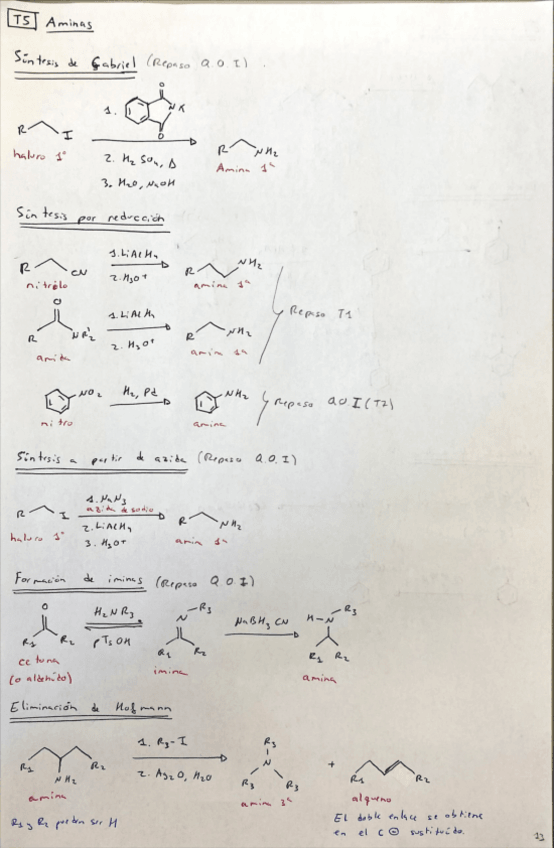 T5 Aminas
Síntesis de Gabriel (Repaso Q.O I).
O
1. N K
O
R I
haluro 1º
2. H2 SO4, Δ
3. H2O, NaOH
R NH2
Amina 1ª
Síntesis por reducción
R CN
nitrilo
1. LiAlH4
2. H3O+
R NH2
amina 1ª
O
R NR2'
amida
1. LiAlH4
2. H3O+
R NH2
amina 1ª
Repaso T1
NO2
nitro
H2, Pd
NH2
amina
Repaso Q.O I (T2)
Síntesis a partir de azida (Repaso Q.O.I)
R I
haluro 1º
1. NaN3
azida de sodio
2. LiAlH4
3. H3O+
R NH2
amin 1ª
Formación de iminas (Repaso Q.O.I)
O
R1 R2
cetona
(o aldehído)
H2N R3
pTsOH
N R3
R1 R2
imina
NaBH3 CN
H-N R3
R1 R2
amina
Eliminación de Hofmann
R1 R2
NH2
amina
1. R3-I
2. Ag2O, H2O
R3
N
R3 R3
amin 3ª
+
R1 R2
alqueno
R1 y R2 pueden ser H
El doble enlace se obtiene
en el C ⊖ sustituido.
13